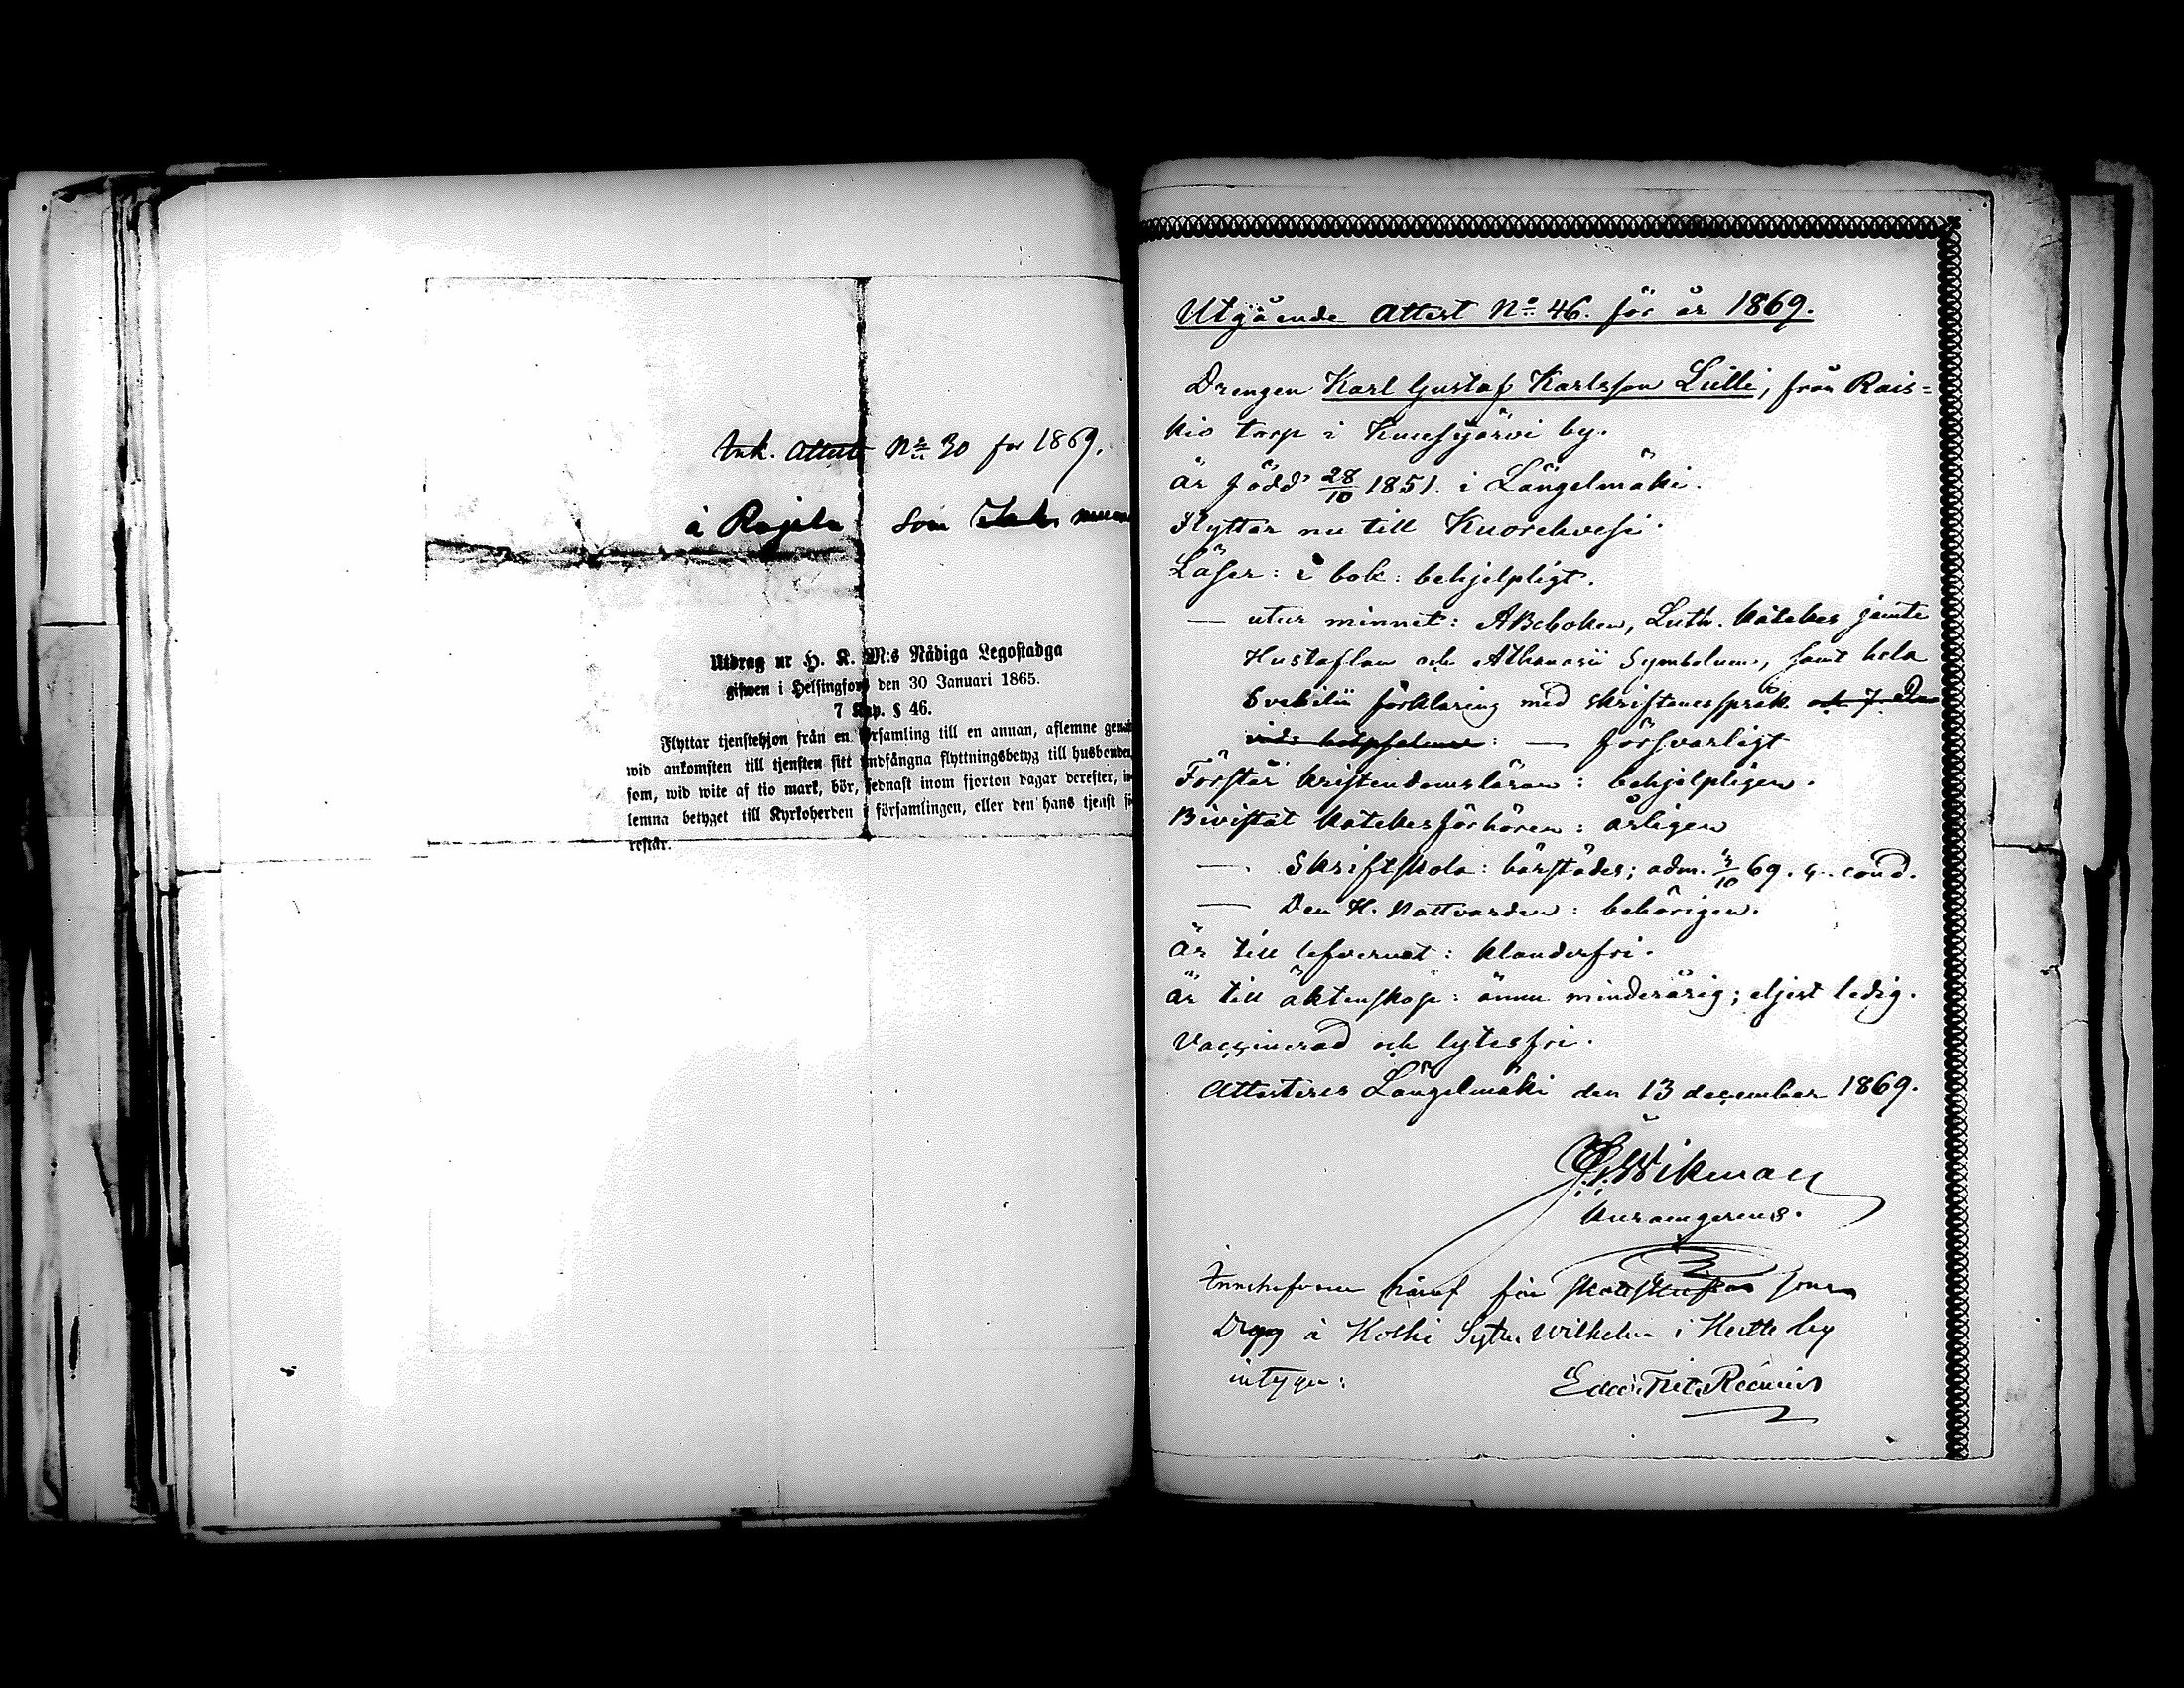 Ink. Attest No 30 för 1869.
à Rajala som
Utdrag ur H. K. M:s Nådiga Legostadga
gifwen i Helsingfors den 30 Januari 1865.
7 Kap. § 46.
Flyttar tjenstehjon från en församling till en annan, aflemne genast
wid ankomsten till tjensten sitt undfångna flyttningsbetyg till husbonden,
som, wid wite af tio mark, bör, sednast inom fjorton dagar derefter, in-
lemna betyget till Kyrkoherden i församlingen, eller den hans tjenst fö-
restår.
Utgående Attest No 46. för år 1869.
Drengen Karl Gustaf Karlsson Lulli, från Rais=
kio torp i Kuusjärvi by.
Är född 28/10 1851. i Längelmäki.
Flyttar nu till Kuorehvesi.
Läser: i bok: behjelpligt.
— utur minnet: ABcboken, Luth. katekes jemte
Hustaflan och Athanasii Symbolum, samt hela
Svebilii förklaring med skriftenesspråk och 7. Da
vids botpsalmer: — försvarligt
Förstår kristendomsläran: behjelpligen.
Bivistat katekesförhören: årligen
— Skriftskola: härstädes; adm. 3/10 69. s. cond.
— Den H. Nattvarden: behörigen.
Är till lefvernet: klanderfri.
Är till äktenskap: ännu minderårig; eljest ledig.
Vaccinerad och lytesfri.
Attesteras Längelmäki den 13 december 1869.
Wikman
Innehafvaren häraf för som
Drgg å Koski Sytn. Wilhelm i by
intygar: